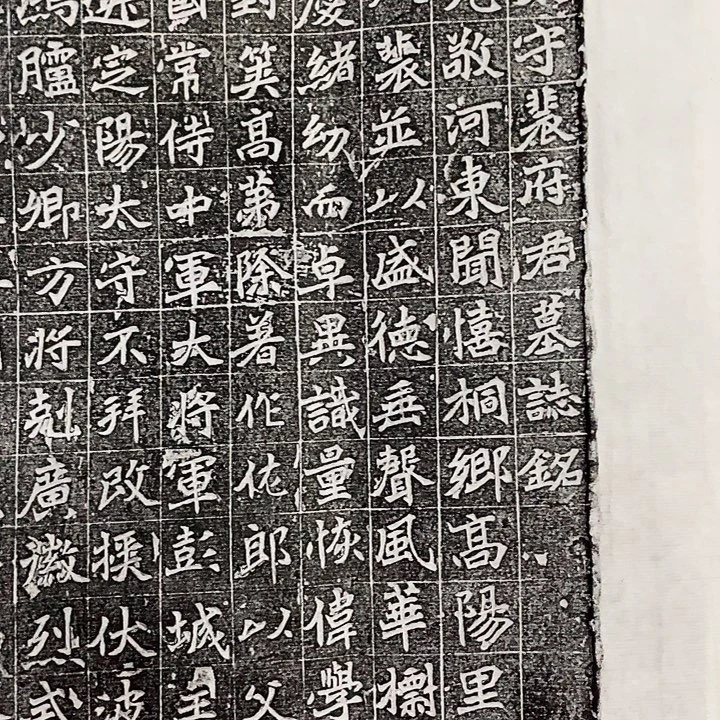 守裴府君墓誌銘
敬河東聞憘桐鄉高陽里
裴並以盛德垂聲風華
慶緒幼而卓異識量恢偉學
對筴高苐除著作佐郎以父
國常侍中軍大將軍彭城王
定陽太守不拜改授伏波
鴻臚少卿方將剋廣徽烈式